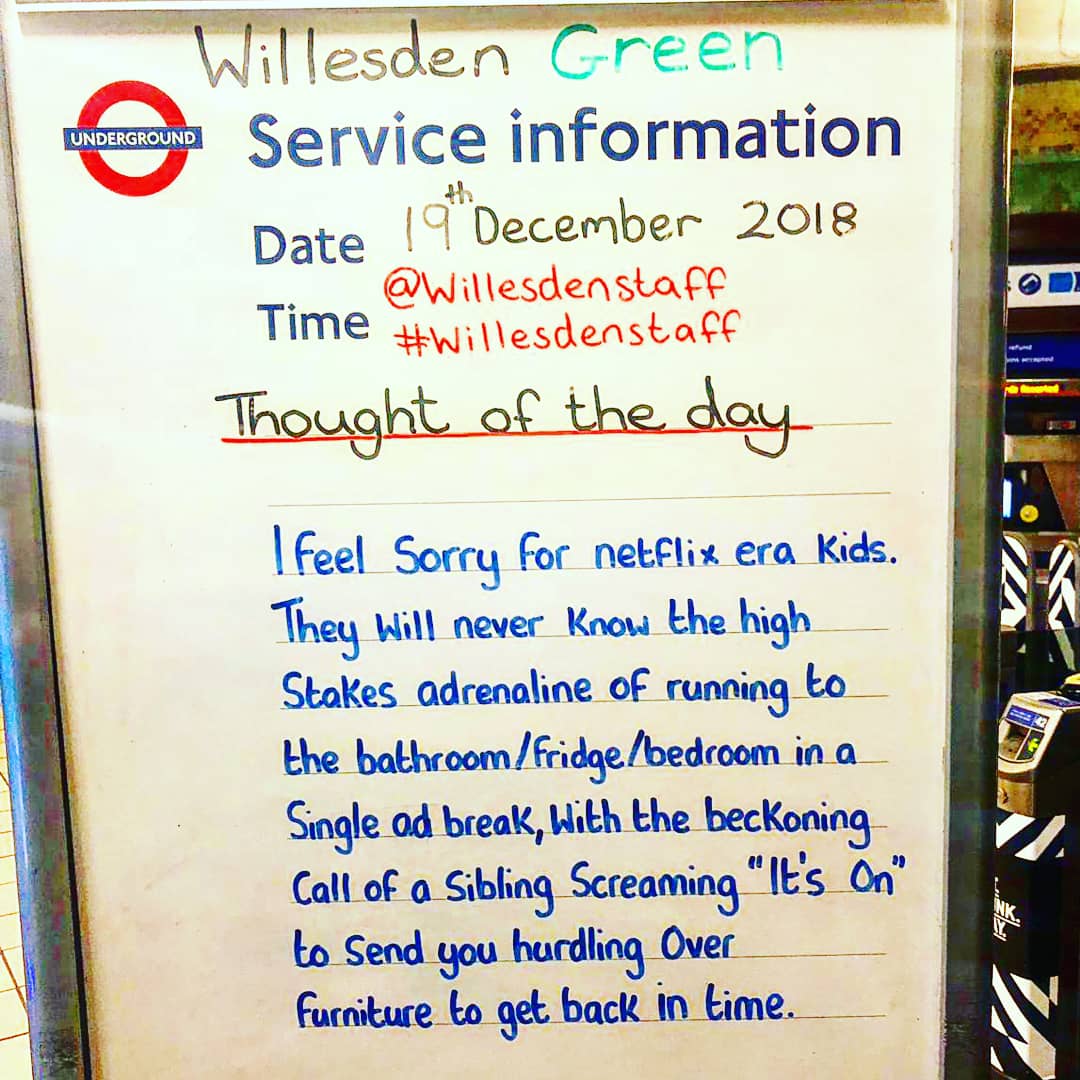 Willesden Green
UNDERGROUND
Service information
Date 19th December 2018
@Willesdenstaff
Time #Willesdenstaff
Thought of the day
I feel Sorry for netflix era Kids.
They Will never Know the high
Stakes adrenaline of running to
the bathroom/fridge/bedroom in a
Single ad break, With the beckoning
Call of a Sibling Screaming "It's On"
to Send you hurdling Over
furniture to get back in time.
refund
accepted